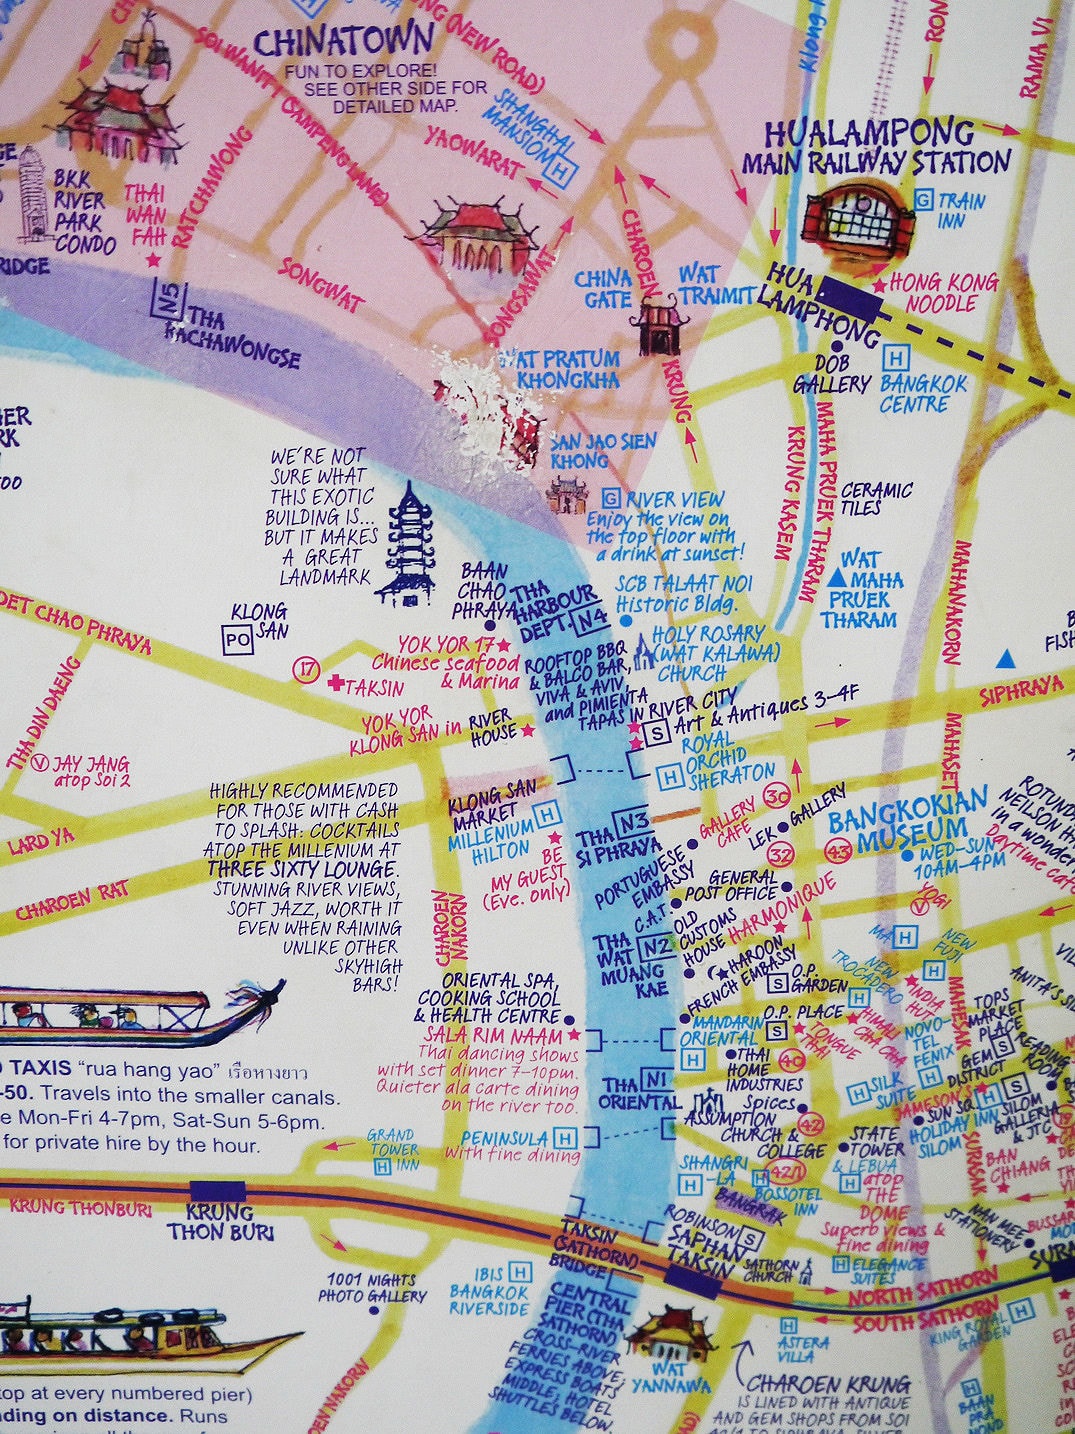 CHINATOWN
FUN TO EXPLORE!
SEE OTHER SIDE FOR
DETAILED MAP.
(NEW ROAD)
SOI WANIT 1 (SAMPENG LANE)
SHANGHAI
MANSION H
YAOWARAT
RATCHAWONG
SONGWAT
SONGSAWAT
BKK
RIVER
PARK
CONDO
THAI
WAN
FAH
RIDGE
N5
THA
RACHAWONGSE
RAMA VI
HUALAMPONG
MAIN RAILWAY STATION
G TRAIN
INN
HONG KONG
NOODLE
HUA
LAMPHONG
CHAROEN
KRUNG
CHINA
GATE
WAT
TRAIMIT
WAT PRATUM
KHONGKHA
DOB
GALLERY
H
BANGKOK
CENTRE
SAN JAO SIEN
KHONG
MAHA PRUEK THARAM
KRUNG KASEM
CERAMIC
TILES
WE'RE NOT
SURE WHAT
THIS EXOTIC
BUILDING IS...
BUT IT MAKES
A GREAT
LANDMARK
G RIVER VIEW
Enjoy the view on
the top floor with
a drink at sunset!
SCB TALAAT NOI
Historic Bldg.
WAT
MAHA
PRUEK
THARAM
MAHANAKORN
BAAN
CHAO
PHRAYA
THA
HARBOUR
DEPT. N4
HOLY ROSARY
(WAT KALAWA)
CHURCH
DET CHAO PHRAYA
KLONG
SAN
PO
17
TAKSIN
YOK YOR 17
Chinese seafood
& Marina
ROOFTOP BBQ
& BALCO BAR,
VIVA & AVIV,
and PIMIENTA
TAPAS IN RIVER CITY
S Art & Antiques 3-4F
SIPHRAYA
THA DIN DAENG
YOK YOR
KLONG SAN in RIVER
HOUSE
V JAY JANG
atop Soi 2
ROYAL
ORCHID
H SHERATON
MAHASET
LARD YA
CHAROEN RAT
HIGHLY RECOMMENDED
FOR THOSE WITH CASH
TO SPLASH: COCKTAILS
ATOP THE MILLENIUM AT
THREE SIXTY LOUNGE.
STUNNING RIVER VIEWS,
SOFT JAZZ, WORTH IT
EVEN WHEN RAINING
UNLIKE OTHER
SKYHIGH
BARS!
KLONG SAN
MARKET
MILLENIUM H
HILTON
BE
MY GUEST
(Eve. only)
THA N3
SI PHRAYA
GALLERY
CAFE
30
LEK GALLERY
32
43
BANGKOKIAN
MUSEUM
WED-SUN
10AM-4PM
PORTUGUESE
EMBASSY
GENERAL
POST OFFICE
C.A.T.
OLD
CUSTOMS
HOUSE
HARMONIQUE
HAROON
FRENCH EMBASSY
YOGI
V
H
NEW
FUJI
H
CHAROEN
NAKORN
THA
WAT N2
MUANG
KAE
O.P.
S GARDEN
NEW
TROCADERO
H
INDIA
HUT
HIMALI
CHA CHA
ORIENTAL SPA,
COOKING SCHOOL
& HEALTH CENTRE
SALA RIM NAAM
Thai dancing shows
with set dinner 7-10pm.
Quieter ala carte dining
on the river too.
MANDARIN
ORIENTAL
H
O.P. PLACE
S
TONGUE
THAI
40
THAI
HOME
INDUSTRIES
NOVO-
TEL
FENIX
H
MAHESAK
TOPS
MARKET
PLACE
GEM S
DISTRICT
READING
ROOM
H SILK
SUITE
JAMESON'S
SUN SQ.
HOLIDAY INN
SILOM
SILOM
GALLERIA
& JTC
TAXIS "rua hang yao" เรือหางยาว
-50. Travels into the smaller canals.
Mon-Fri 4-7pm, Sat-Sun 5-6pm.
for private hire by the hour.
THA N1
ORIENTAL
Spices
ASSUMPTION
CHURCH &
COLLEGE
42
STATE
TOWER
& LEBUA
H atop
THE
DOME
Superb views &
fine dining
SURASAK
BAN
CHIANG
GRAND
TOWER
H INN
PENINSULA H
with fine dining
SHANGRI
-LA
H
42/1
H
BOSSOTEL
INN
BANGRAK
NAN MEE
STATIONERY
KRUNG THONBURI
KRUNG
THON BURI
TAKSIN
(SATHORN)
BRIDGE
ROBINSON S
SAPHAN
TAKSIN
SATHORN
CHURCH
H ELEGANCE
SUITES
NORTH SATHORN
SOUTH SATHORN
1001 NIGHTS
PHOTO GALLERY
IBIS H
BANGKOK
RIVERSIDE
CENTRAL
PIER (THA
SATHORN)
CROSS-RIVER
FERRIES ABOVE,
EXPRESS BOATS
MIDDLE, HOTEL
SHUTTLES BELOW.
WAT
YANNAWA
H
ASTERA
VILLA
KING ROYAL H
GARDEN
top at every numbered pier)
ding on distance. Runs
CHAROEN KRUNG
IS LINED WITH ANTIQUE
AND GEM SHOPS FROM SOI
H
BAAN
PRA
NOND